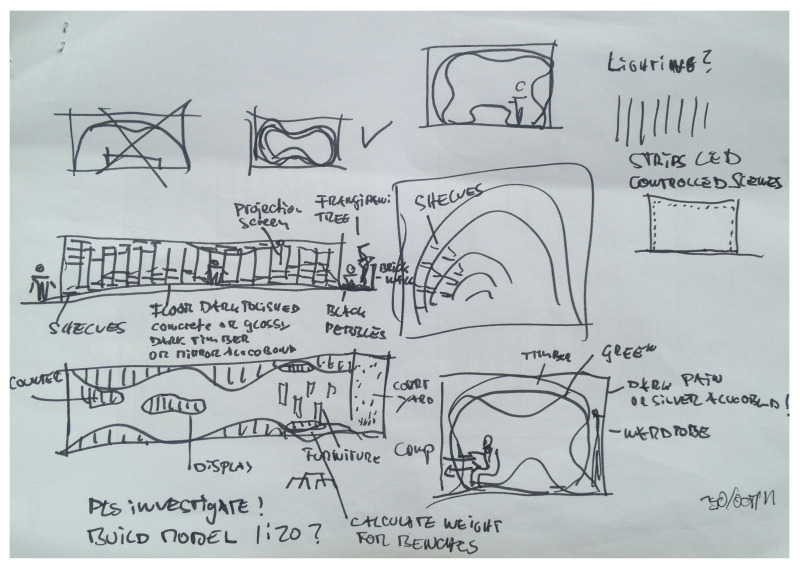 LIGHTING?
C
STRIPS LED
CONTROLLED SCENES
PROJECTION
SCREEN
FRANGIPANI
TREE
SHELVES
BRICK
WALL
SHELVES
FLOOR DARK POLISHED
CONCRETE OR GLOSSY
DARK TIMBER
OR MIRROR ALUCOBOND
BLACK
PEBBLES
COUNTER
COURT
YARD
TIMBER
GREEN
DARK PAIN
OR SILVER ALUCOBOND!
WARDROBE
COMP
DISPLAY
FURNITURE
PLS INVESTIGATE!
BUILD MODEL 1:20?
CALCULATE WEIGHT
FOR BENCHES